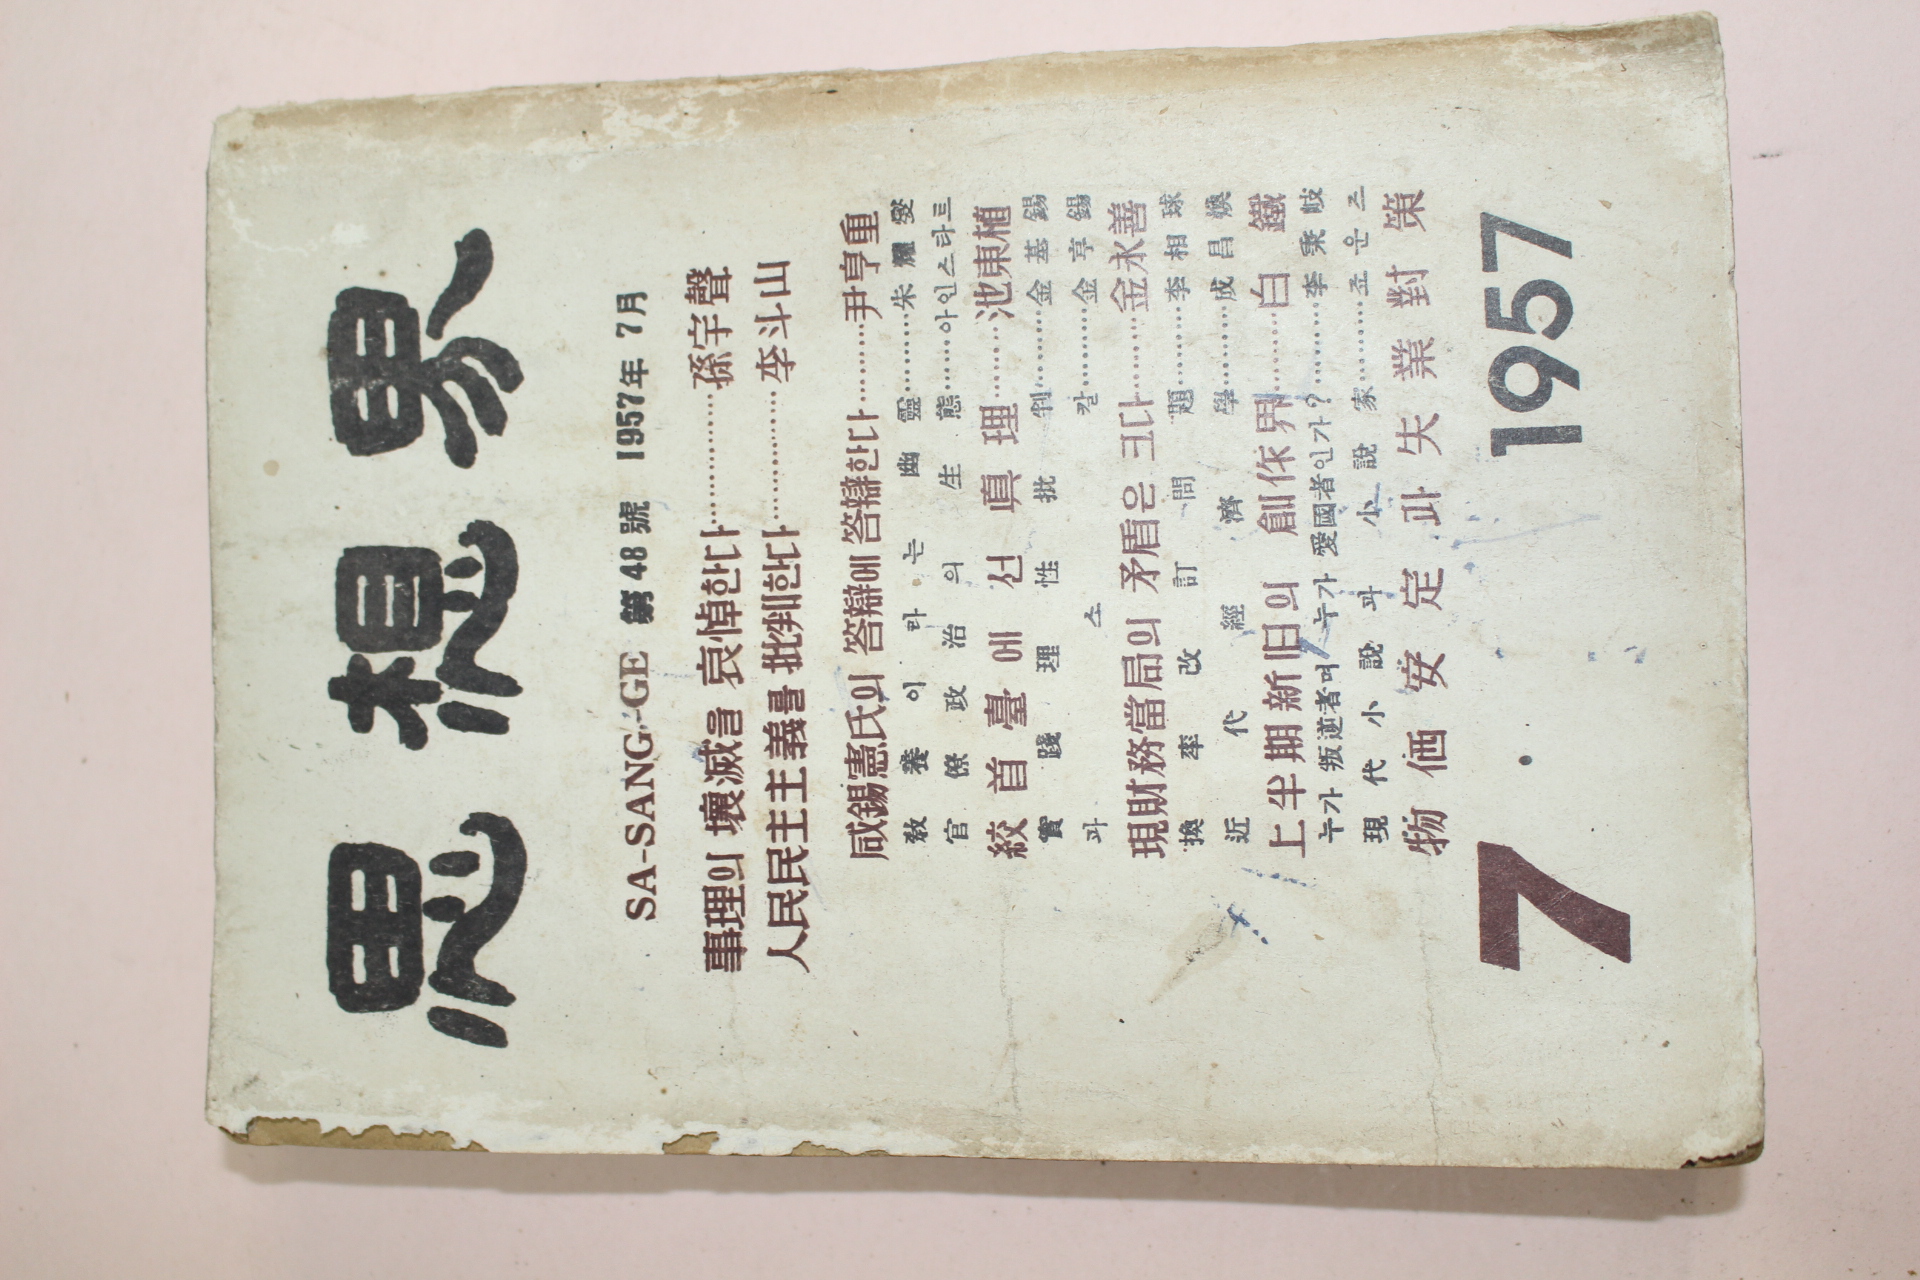 思想界
SA-SANG-GE 第48號 1957年 7月
事理의 壞滅을 哀悼한다……………孫宇聲
人民民主主義를 批判한다……………李斗山
咸錫憲氏의 答辯에 答辯한다………尹亨重
敎養이라는 幽靈………朱耀燮
官僚政治의 生態………아인스타트
絞首臺에 선 眞理………池東植
實踐理性批判………金基錫
과 스칼………金亨錫
現財務當局의 矛盾은 크다………金永善
換率改訂問題………李相球
近代經濟學………成昌煥
上半期新旧의 創作界………白鐵
누가 叛逆者며 누가 愛國者인가?………李秉岐
現代小說과 小說家………죠운즈
物価安定과 失業對策
7 · 1957